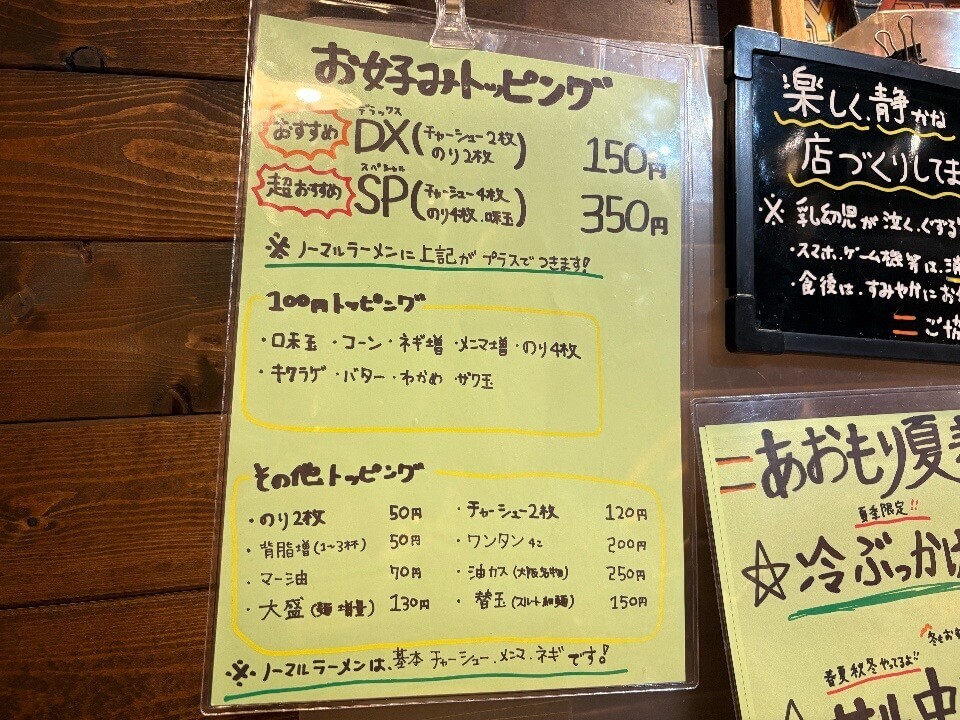 お好みトッピング
おすすめ DX デラックス (チャーシュー2枚 のり2枚) 150円
超おすすめ SP スペシャル (チャーシュー4枚 のり4枚、味玉) 350円
※ ノーマルラーメンに上記がプラスでつきます!
100円トッピング
・味玉 ・コーン ・ネギ増 ・メンマ増 ・のり4枚
・キクラゲ ・バター ・わかめ ザク玉
その他トッピング
・のり2枚 50円 ・チャーシュー2枚 120円
・背脂増(1~3杯) 50円 ・ワンタン4コ 200円
・マー油 70円 ・油カス(大阪名物) 250円
・大盛(麺増量) 130円 ・替玉(スルト細麺) 150円
※ ノーマルラーメンは、基本チャーシュー、メンマ、ネギです!
楽しく、静かな
店づくりしてま
※ 乳幼児が泣く、ぐずる
・スマホ、ゲーム機等は、消
・食後は、すみやかにお
= ご協
=あおもり夏
夏季限定!!
☆冷ぶっかけ
冬もお
春夏秋冬やってるよ!!